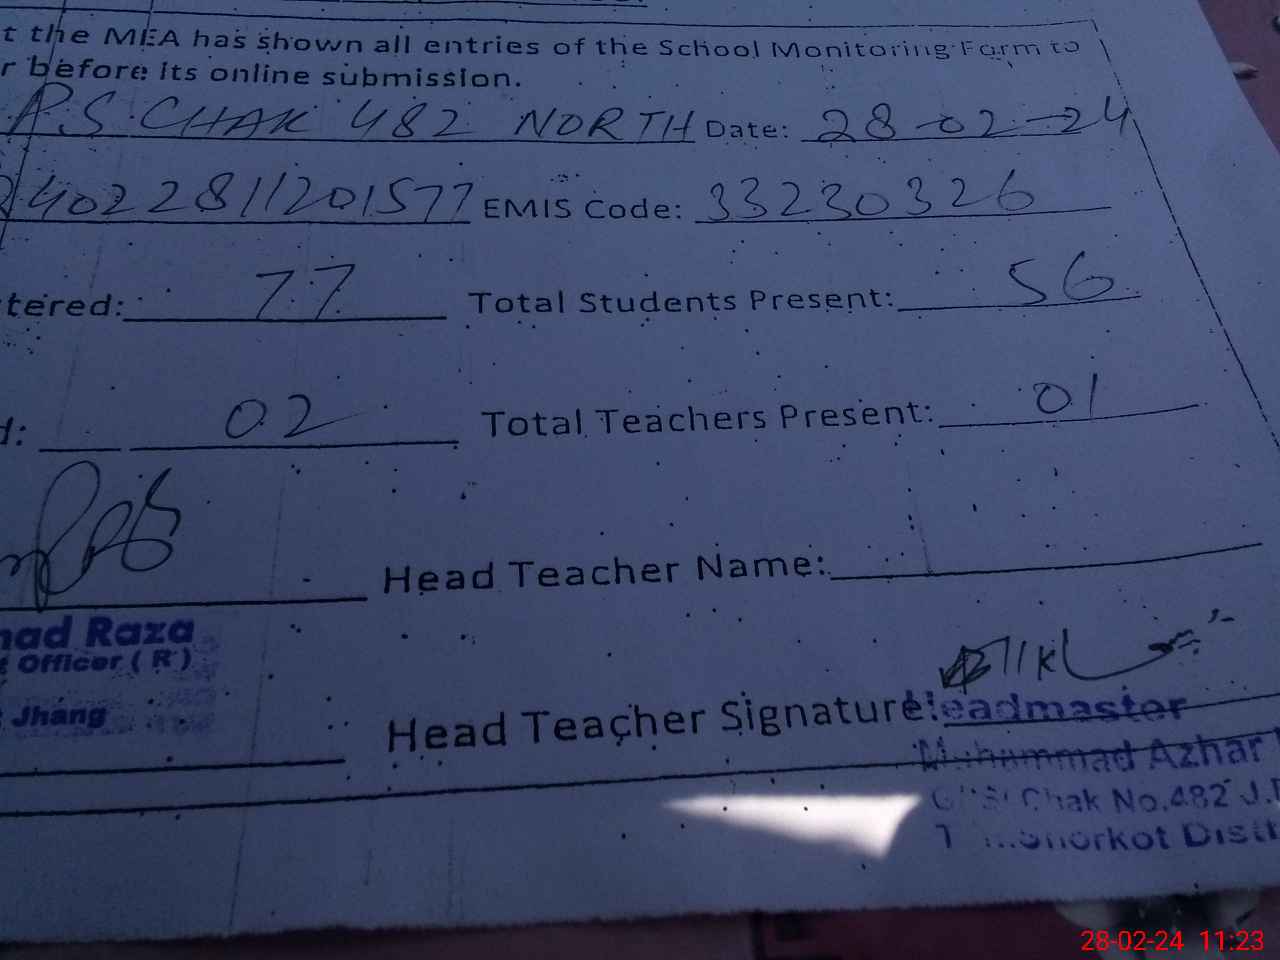 t the MEA has shown all entries of the School Monitoring Form to
r before its online submission.
PS CHAK 482 NORTH Date: 28-02-24
4022811201577 EMIS Code: 33230326
tered: 77 Total Students Present: 56
d: 02 Total Teachers Present: 01
Head Teacher Name:
mad Raza
Officer ( R )
Jhang
Head Teacher Signature:
Headmaster
Muhammad Azhar
Chak No.482 J.
Shorkot Distt
28-02-24 11:23